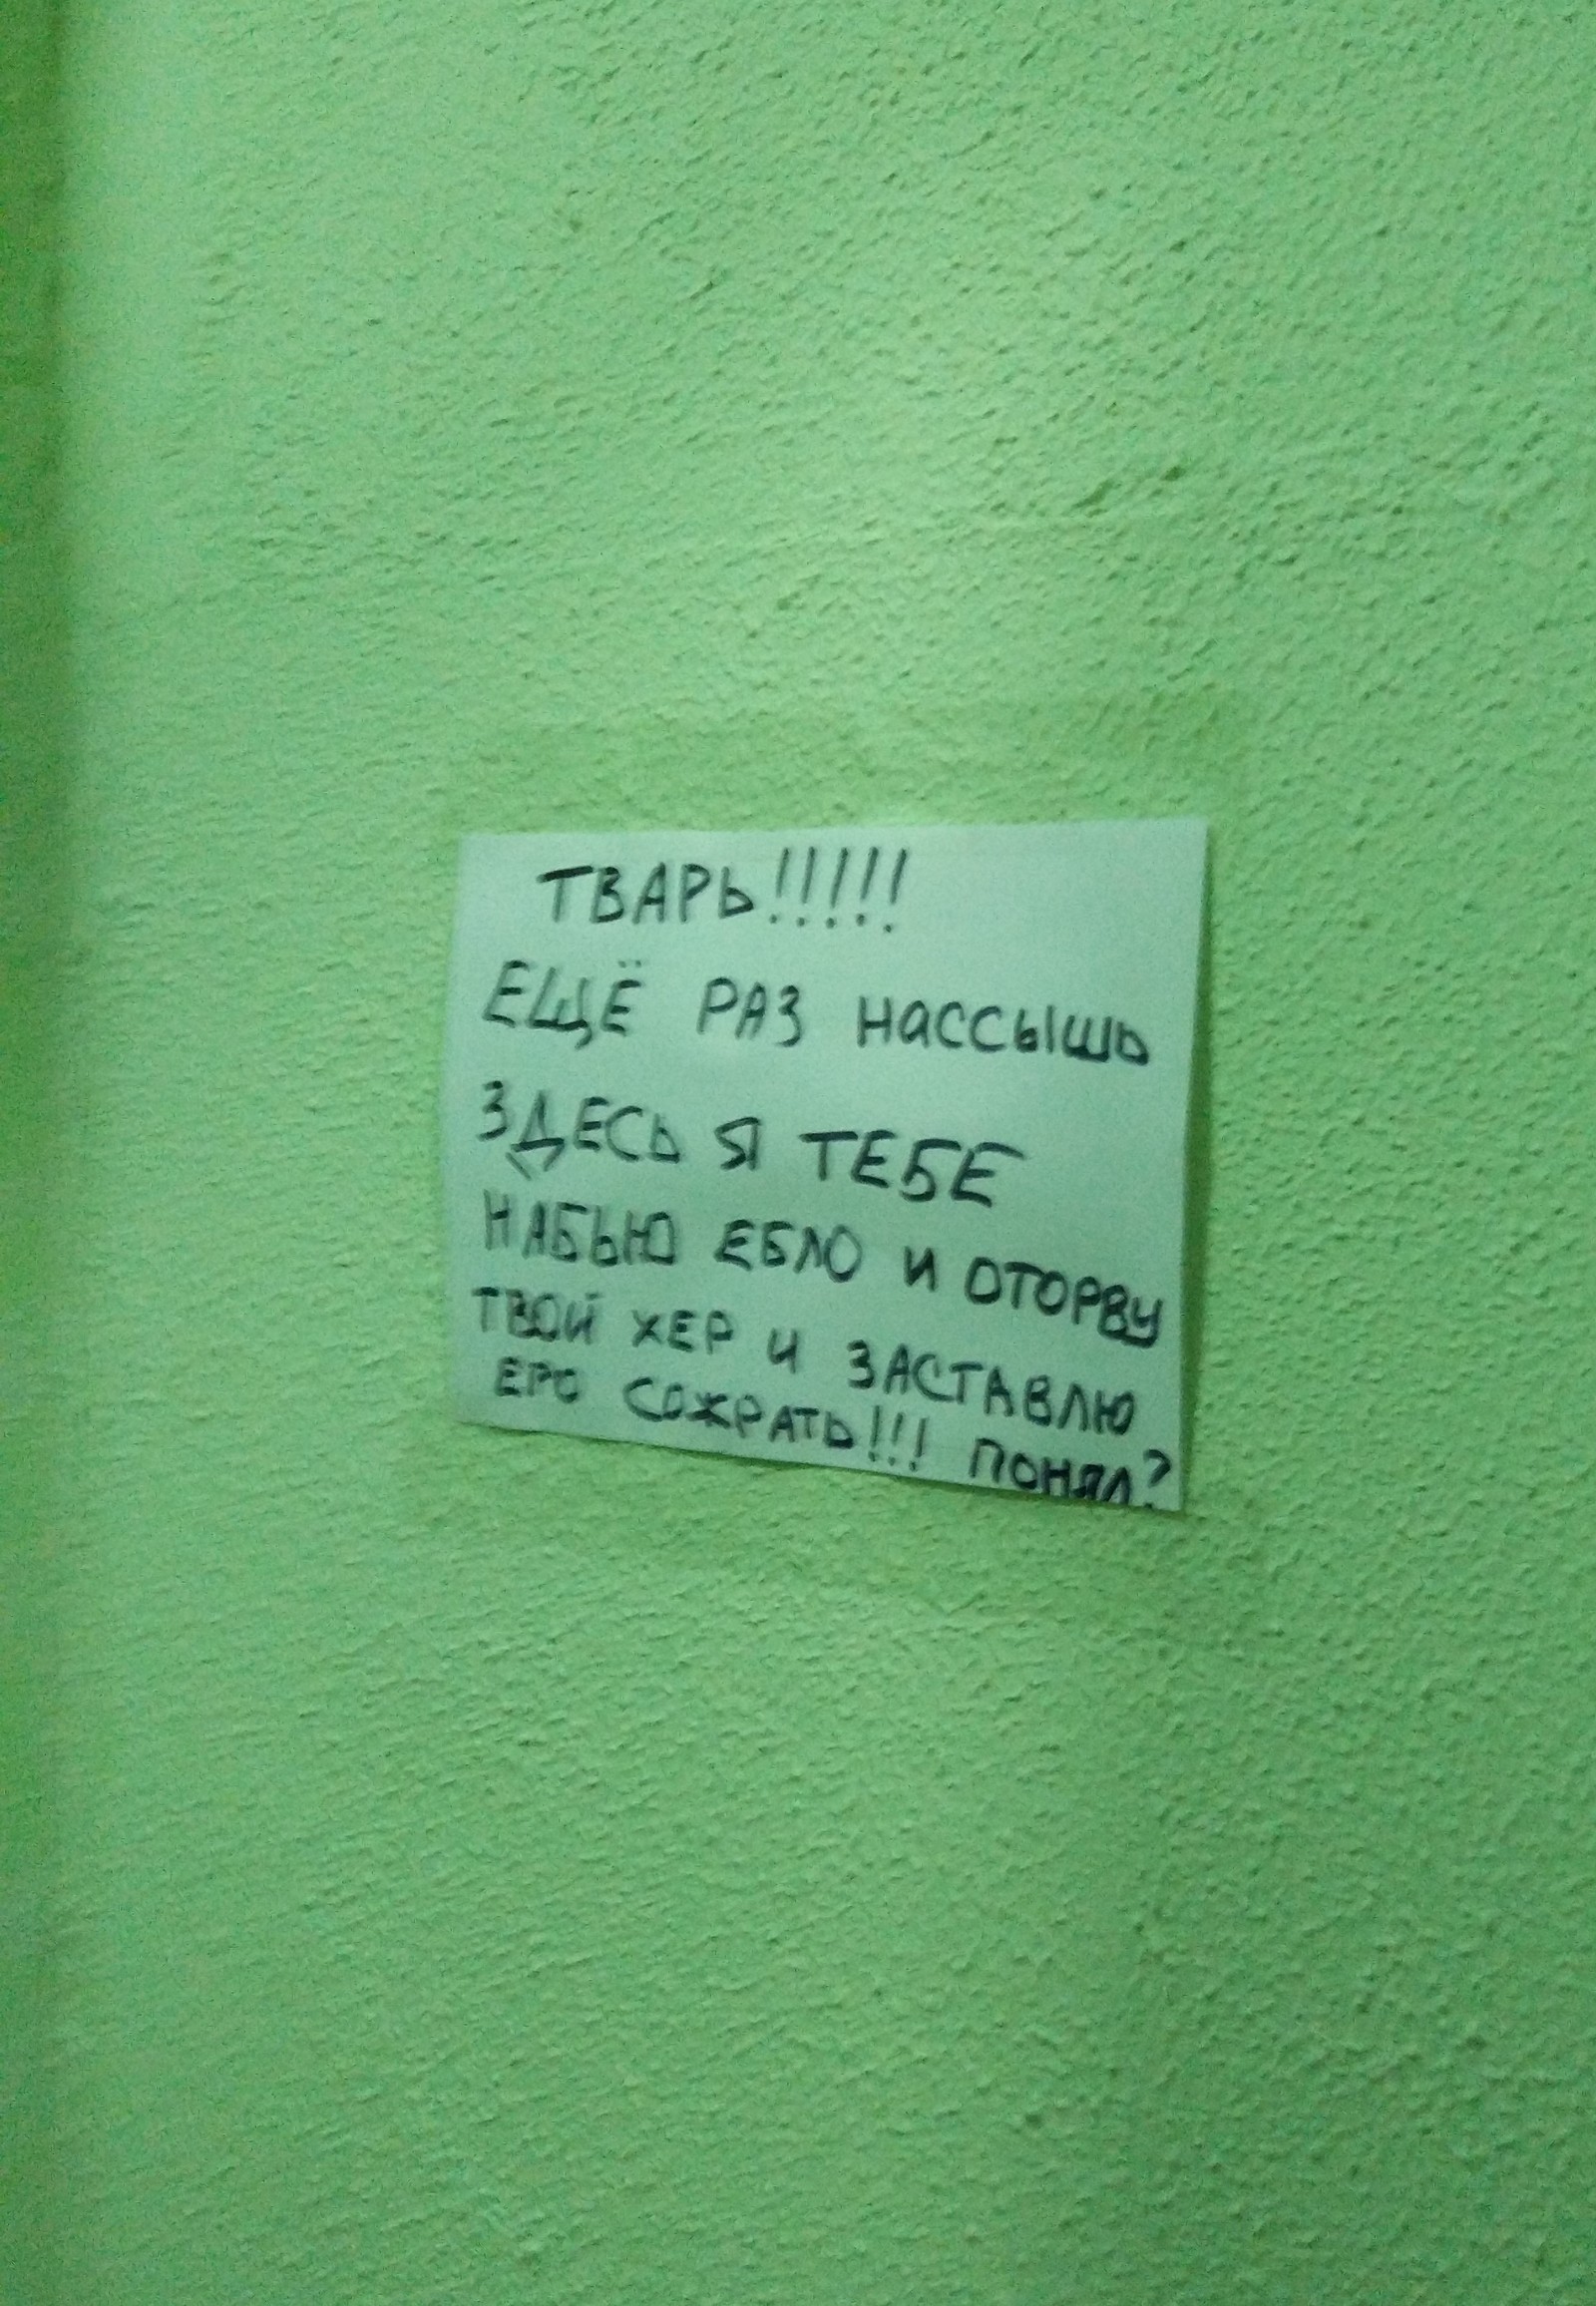 ТВАРЬ!!!!!
ЕЩЁ РАЗ НАССЫШЬ
ЗДЕСЬ Я ТЕБЕ
НАБЬЮ ЕБЛО И ОТОРВУ
ТВОЙ ХЕР И ЗАСТАВЛЮ
ЕРО СОЖРАТЬ!!! ПОНЯЛ?